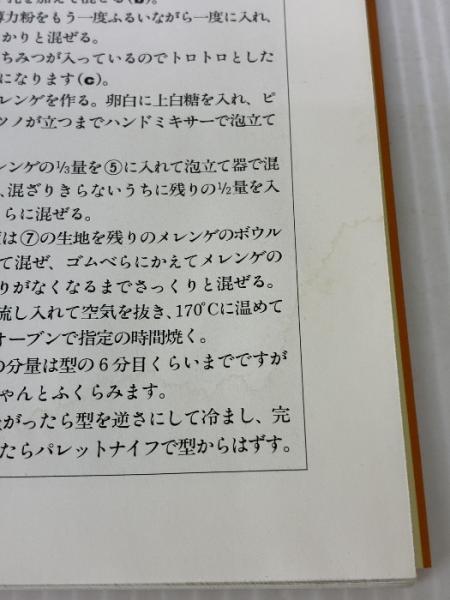 薄力粉をもう一度ふるいながら一度に入れ、
かりと混ぜる。
ちみつが入っているのでトロトロとした
になります(c)。
レンゲを作る。卵白に上白糖を入れ、ピ
ツノが立つまでハンドミキサーで泡立て
ンゲの⅓量を⑤に入れて泡立て器で混
、混ざりきらないうちに残りの½量を入
らに混ぜる。
は⑦の生地を残りのメレンゲのボウル
て混ぜ、ゴムべらにかえてメレンゲの
りがなくなるまでさっくりと混ぜる。
流し入れて空気を抜き、170℃に温めて
オーブンで指定の時間焼く。
の分量は型の6分目くらいまでですが
ゃんとふくらみます。
がったら型を逆さにして冷まし、完
たらパレットナイフで型からはずす。